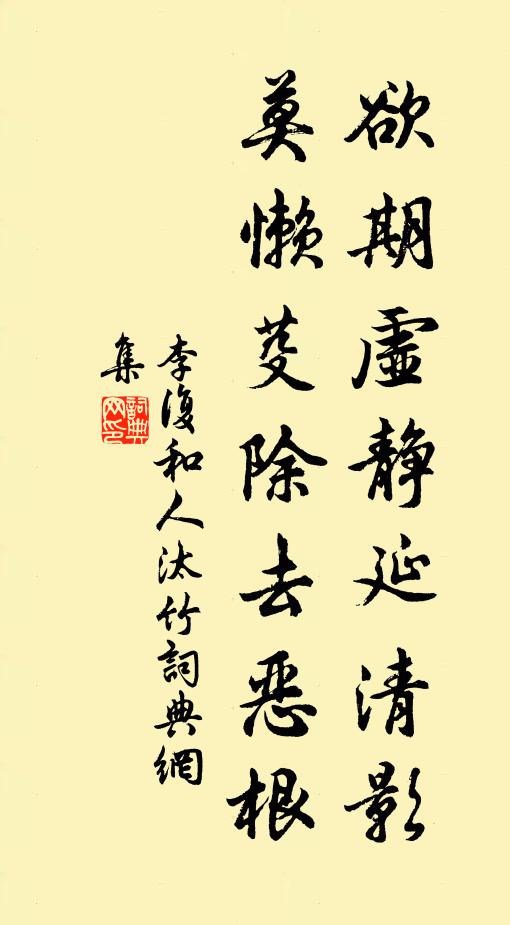 欲期虛静延清影
莫懶芟除去惡根
李復和人汰竹詞典網
集
詞典網印